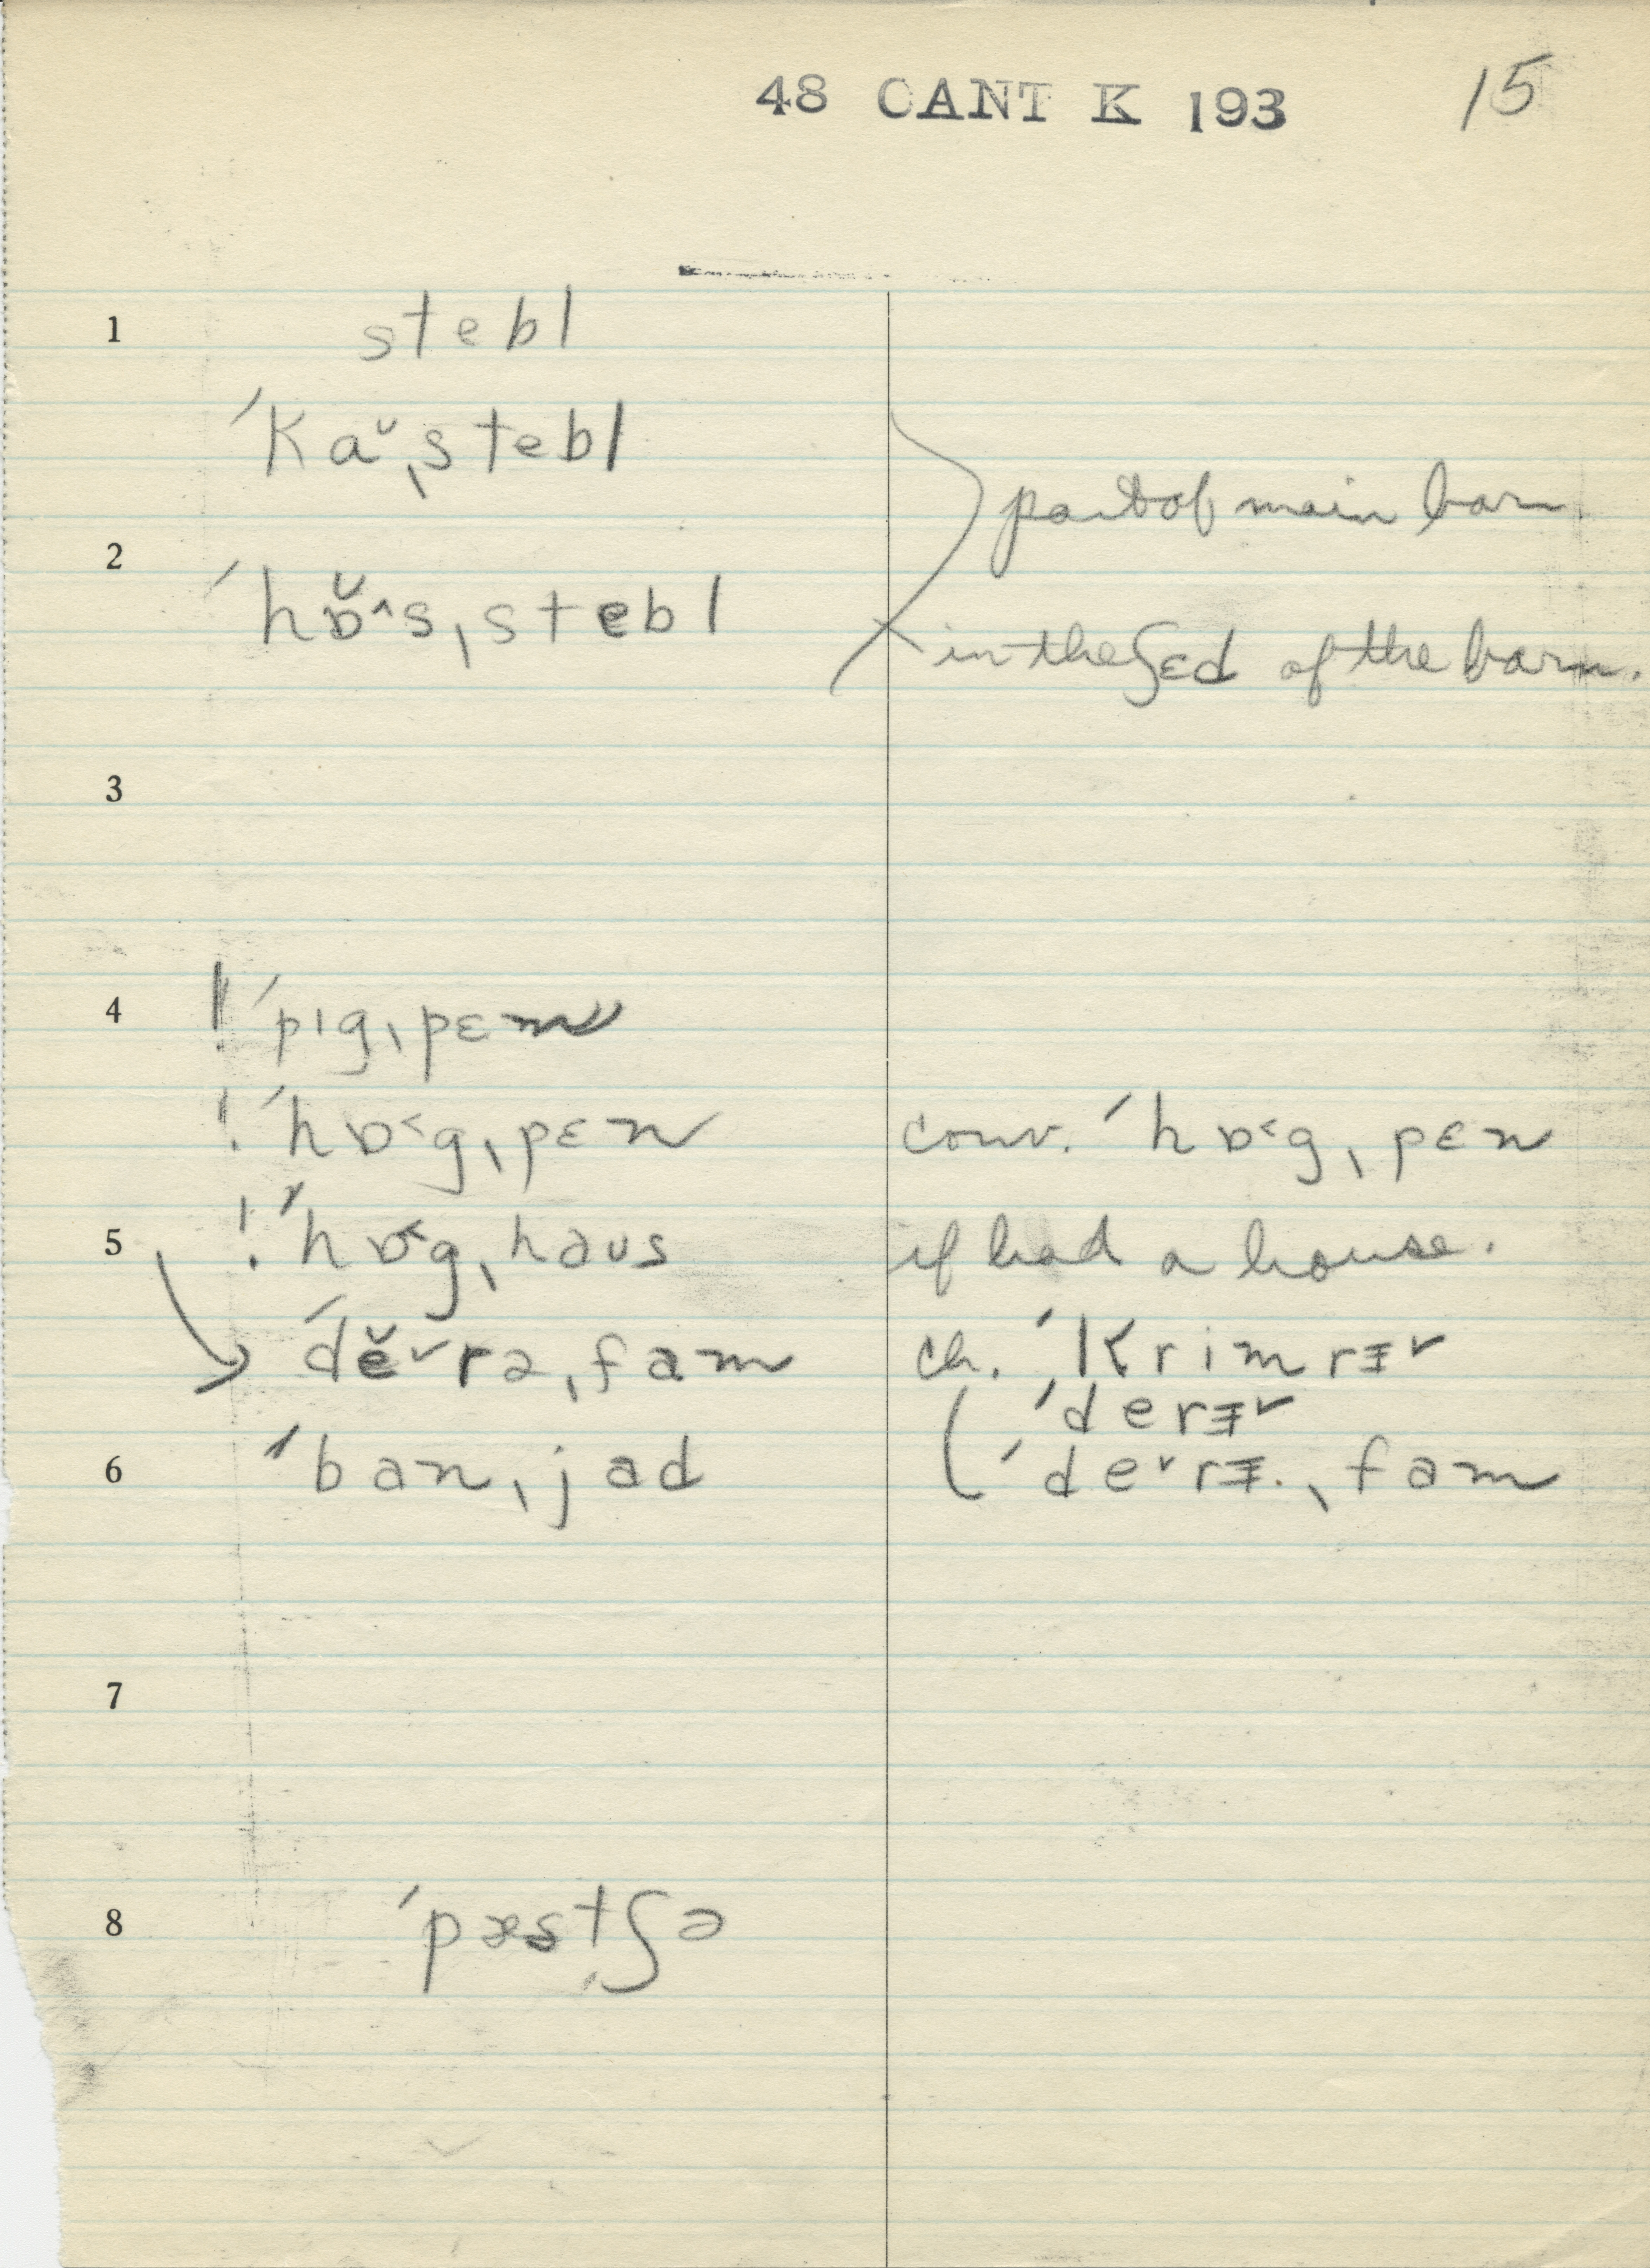 48 CANT K 193 15
1 stebl
ˈkaˇˌstebl
part of main barn
2 ˈhɒ̆^sˌstebl
in the ʃɛd of the barn.
3
4 ! ˈpɪgˌpɛn
! ˈhɒ˂gˌpɛn conv. ˈhɒ˂gˌpɛn
5 ! ˈhɒ˂gˌhaʊs if had a house.
ˈdĕˇrəˌfam ch. ˈkrimrɪˇ
ˈderɪˇ
6 ˈbanˌjad ˈdeˇrɪ.ˌfam
7
8 ˈpæsˌtʃə